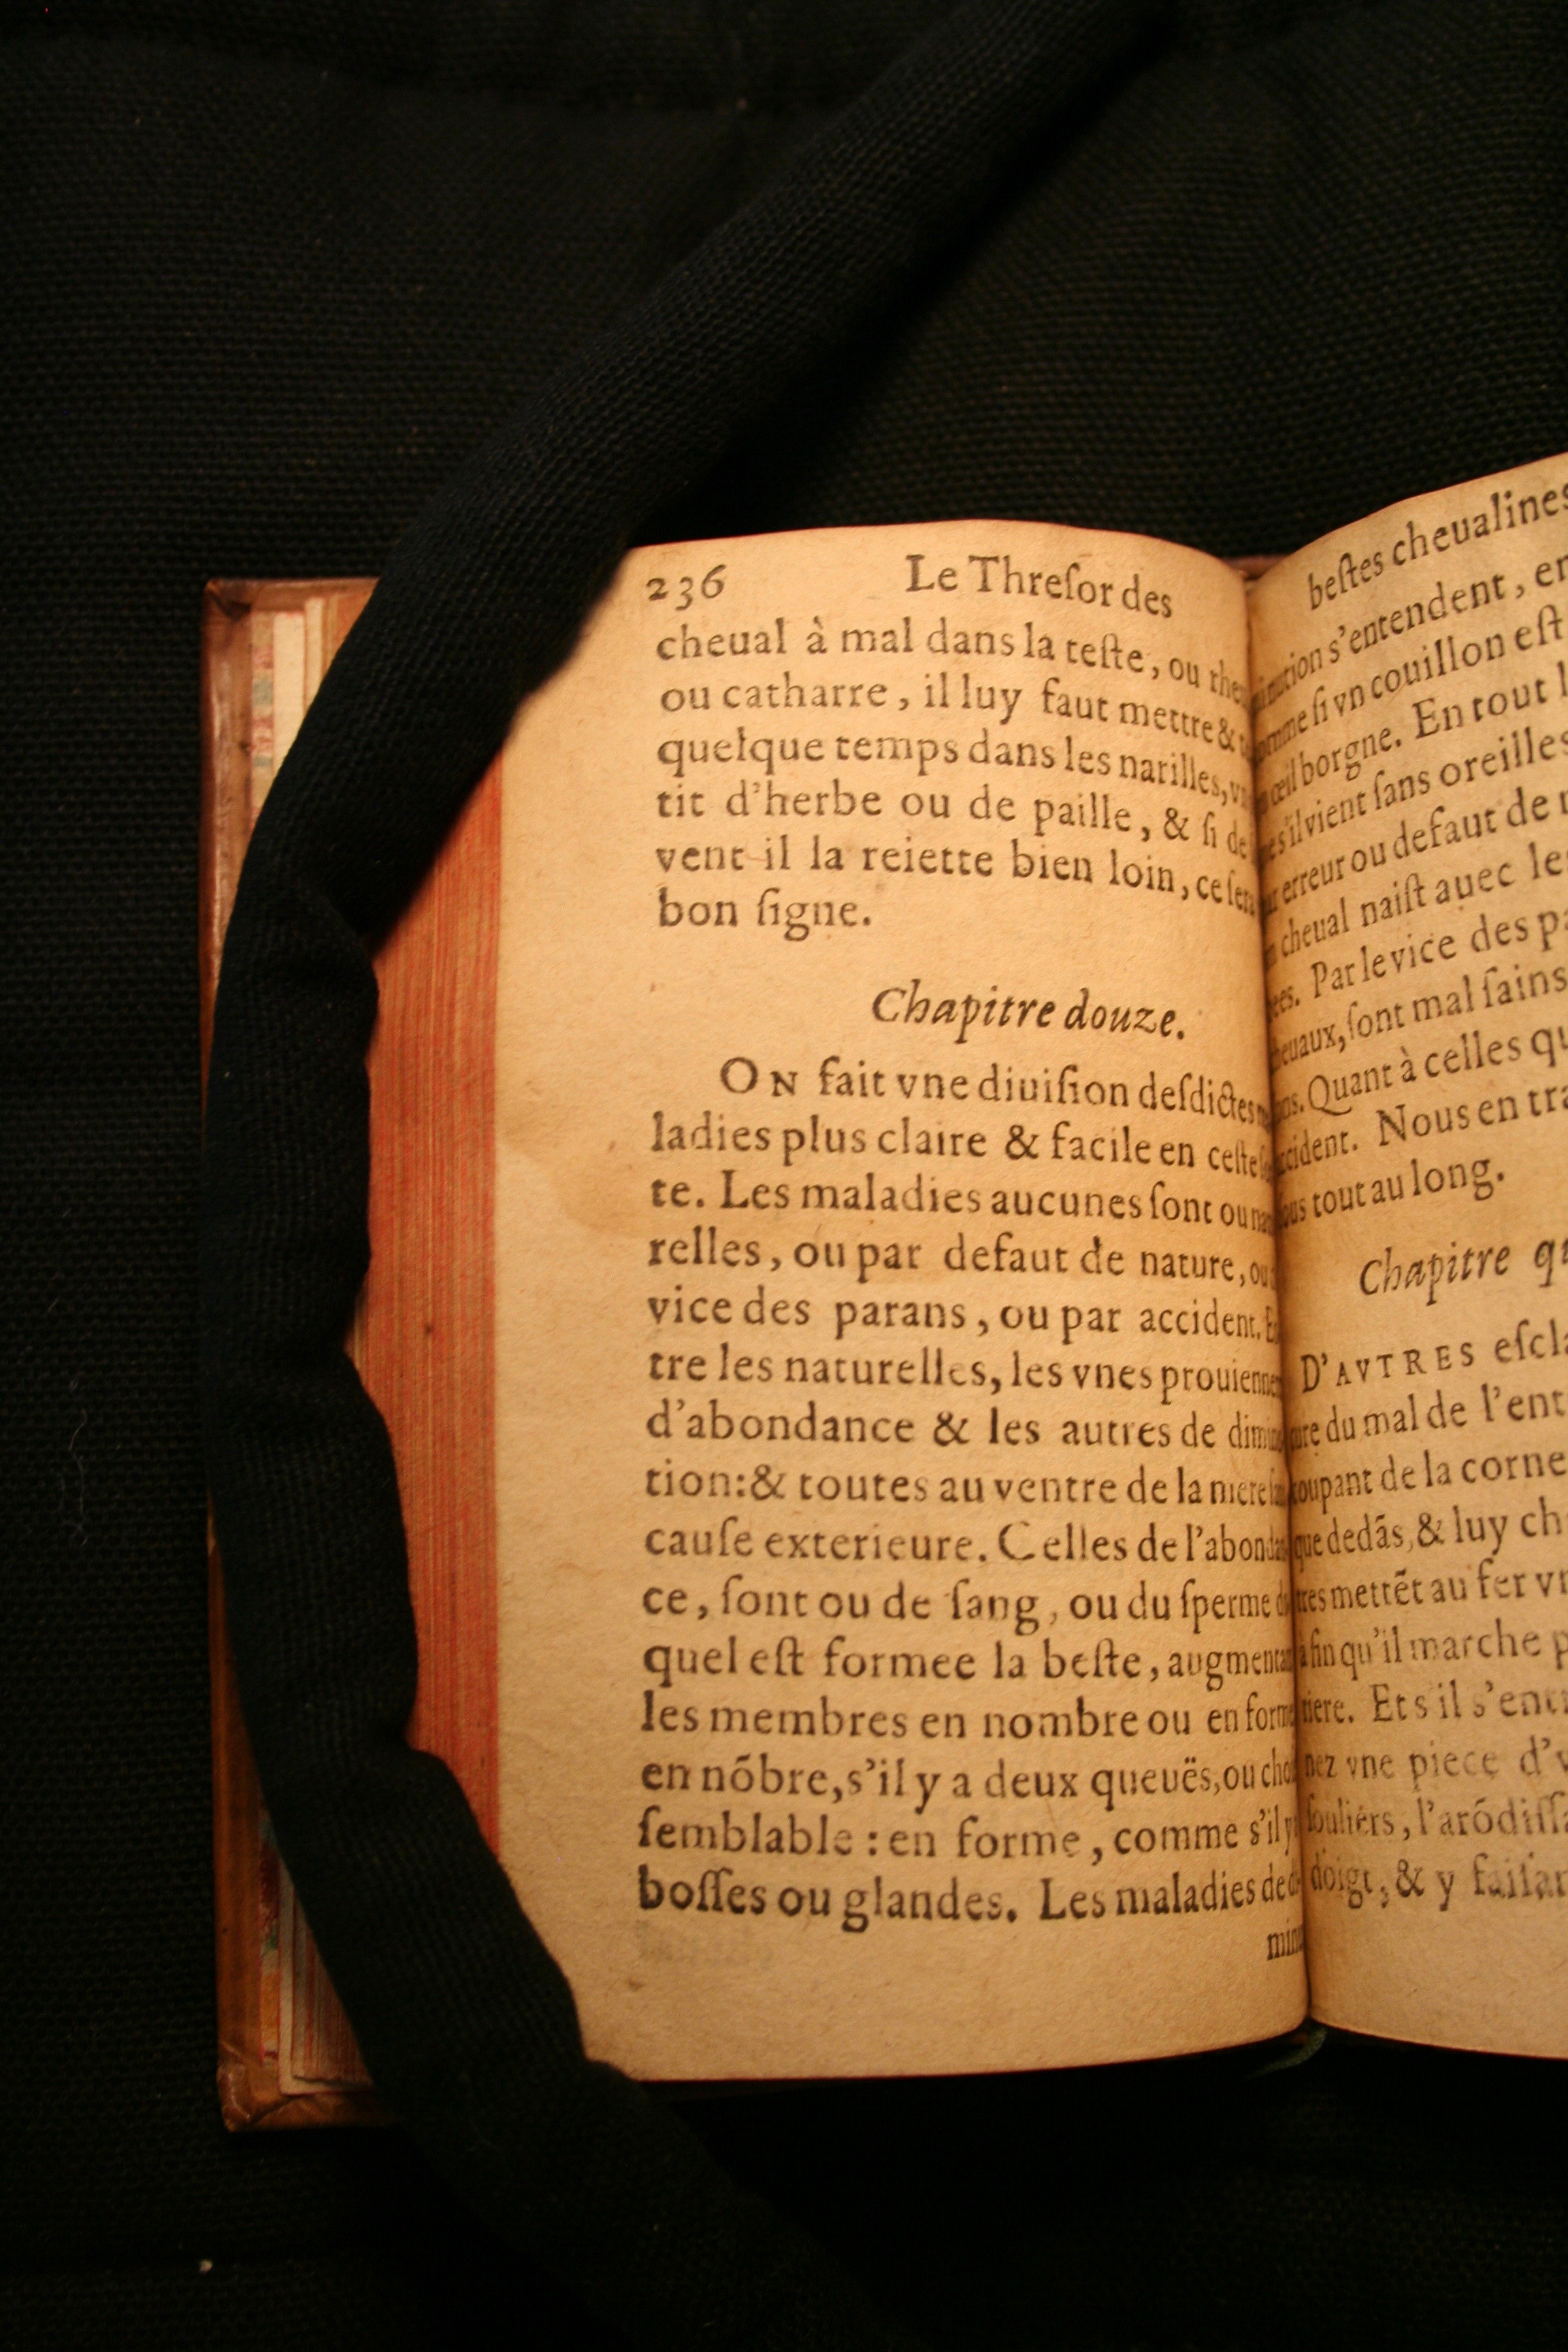 236 Le Threſor des
cheual à mal dans la teſte, ou
ou catharre, il luy faut mettre &
quelque temps dans les narilles,
tit d'herbe ou de paille, & ſi de
vent il la reiette bien loin, ce ſera
bon ſigne.
Chapitre douze.
ON fait vne diuiſion deſdictes
ladies plus claire & facile en ceſte
te. Les maladies aucunes ſont ou
relles, ou par defaut de nature, ou
vice des parans, ou par accident.
tre les naturelles, les vnes prouienne
d'abondance & les autres de dimi
tion:& toutes au ventre de la mere
cauſe exterieure. Celles de l'abonda
ce, ſont ou de ſang, ou du ſperme
quel eſt formee la beſte, augmenta
les membres en nombre ou en forme
en nõbre, s'il y a deux queuës, ou cho
ſemblable : en forme, comme s'il y
boſſes ou glandes. Les maladies de
min
beſtes cheualines
s'entendent, en
ſi vn couillon eſt
borgne. En tout
s'il vient ſans oreilles
erreur ou defaut de
cheual naiſt auec le
Par le vice des pa
ſont mal ſains
Quant à celles qu
cident. Nous en tra
tout au long.
Chapitre qu
D'AVTRES eſcla
du mal de l'ent
coupant de la corne
que dedãs, & luy ch
mettẽt au fer vn
afin qu'il marche p
tiere. Et s'il s'enc
nez vne piece d'v
ſouliérs, l'arõdiſſa
doigt, & y faiſan